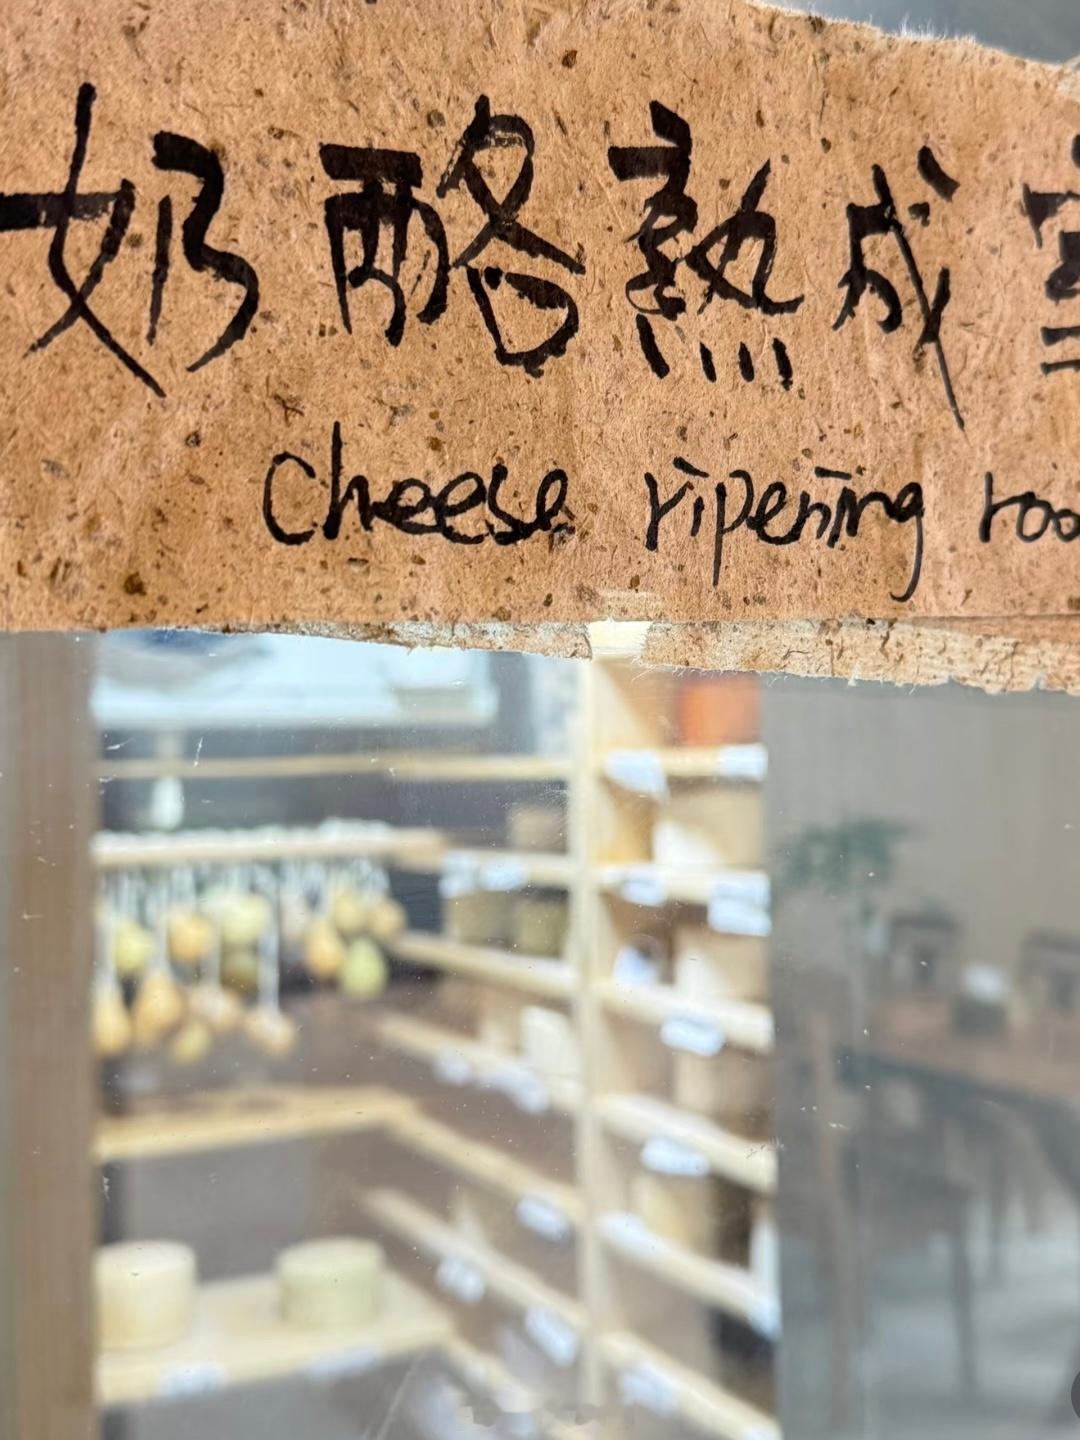 奶酪熟成室
Cheese ripening roo